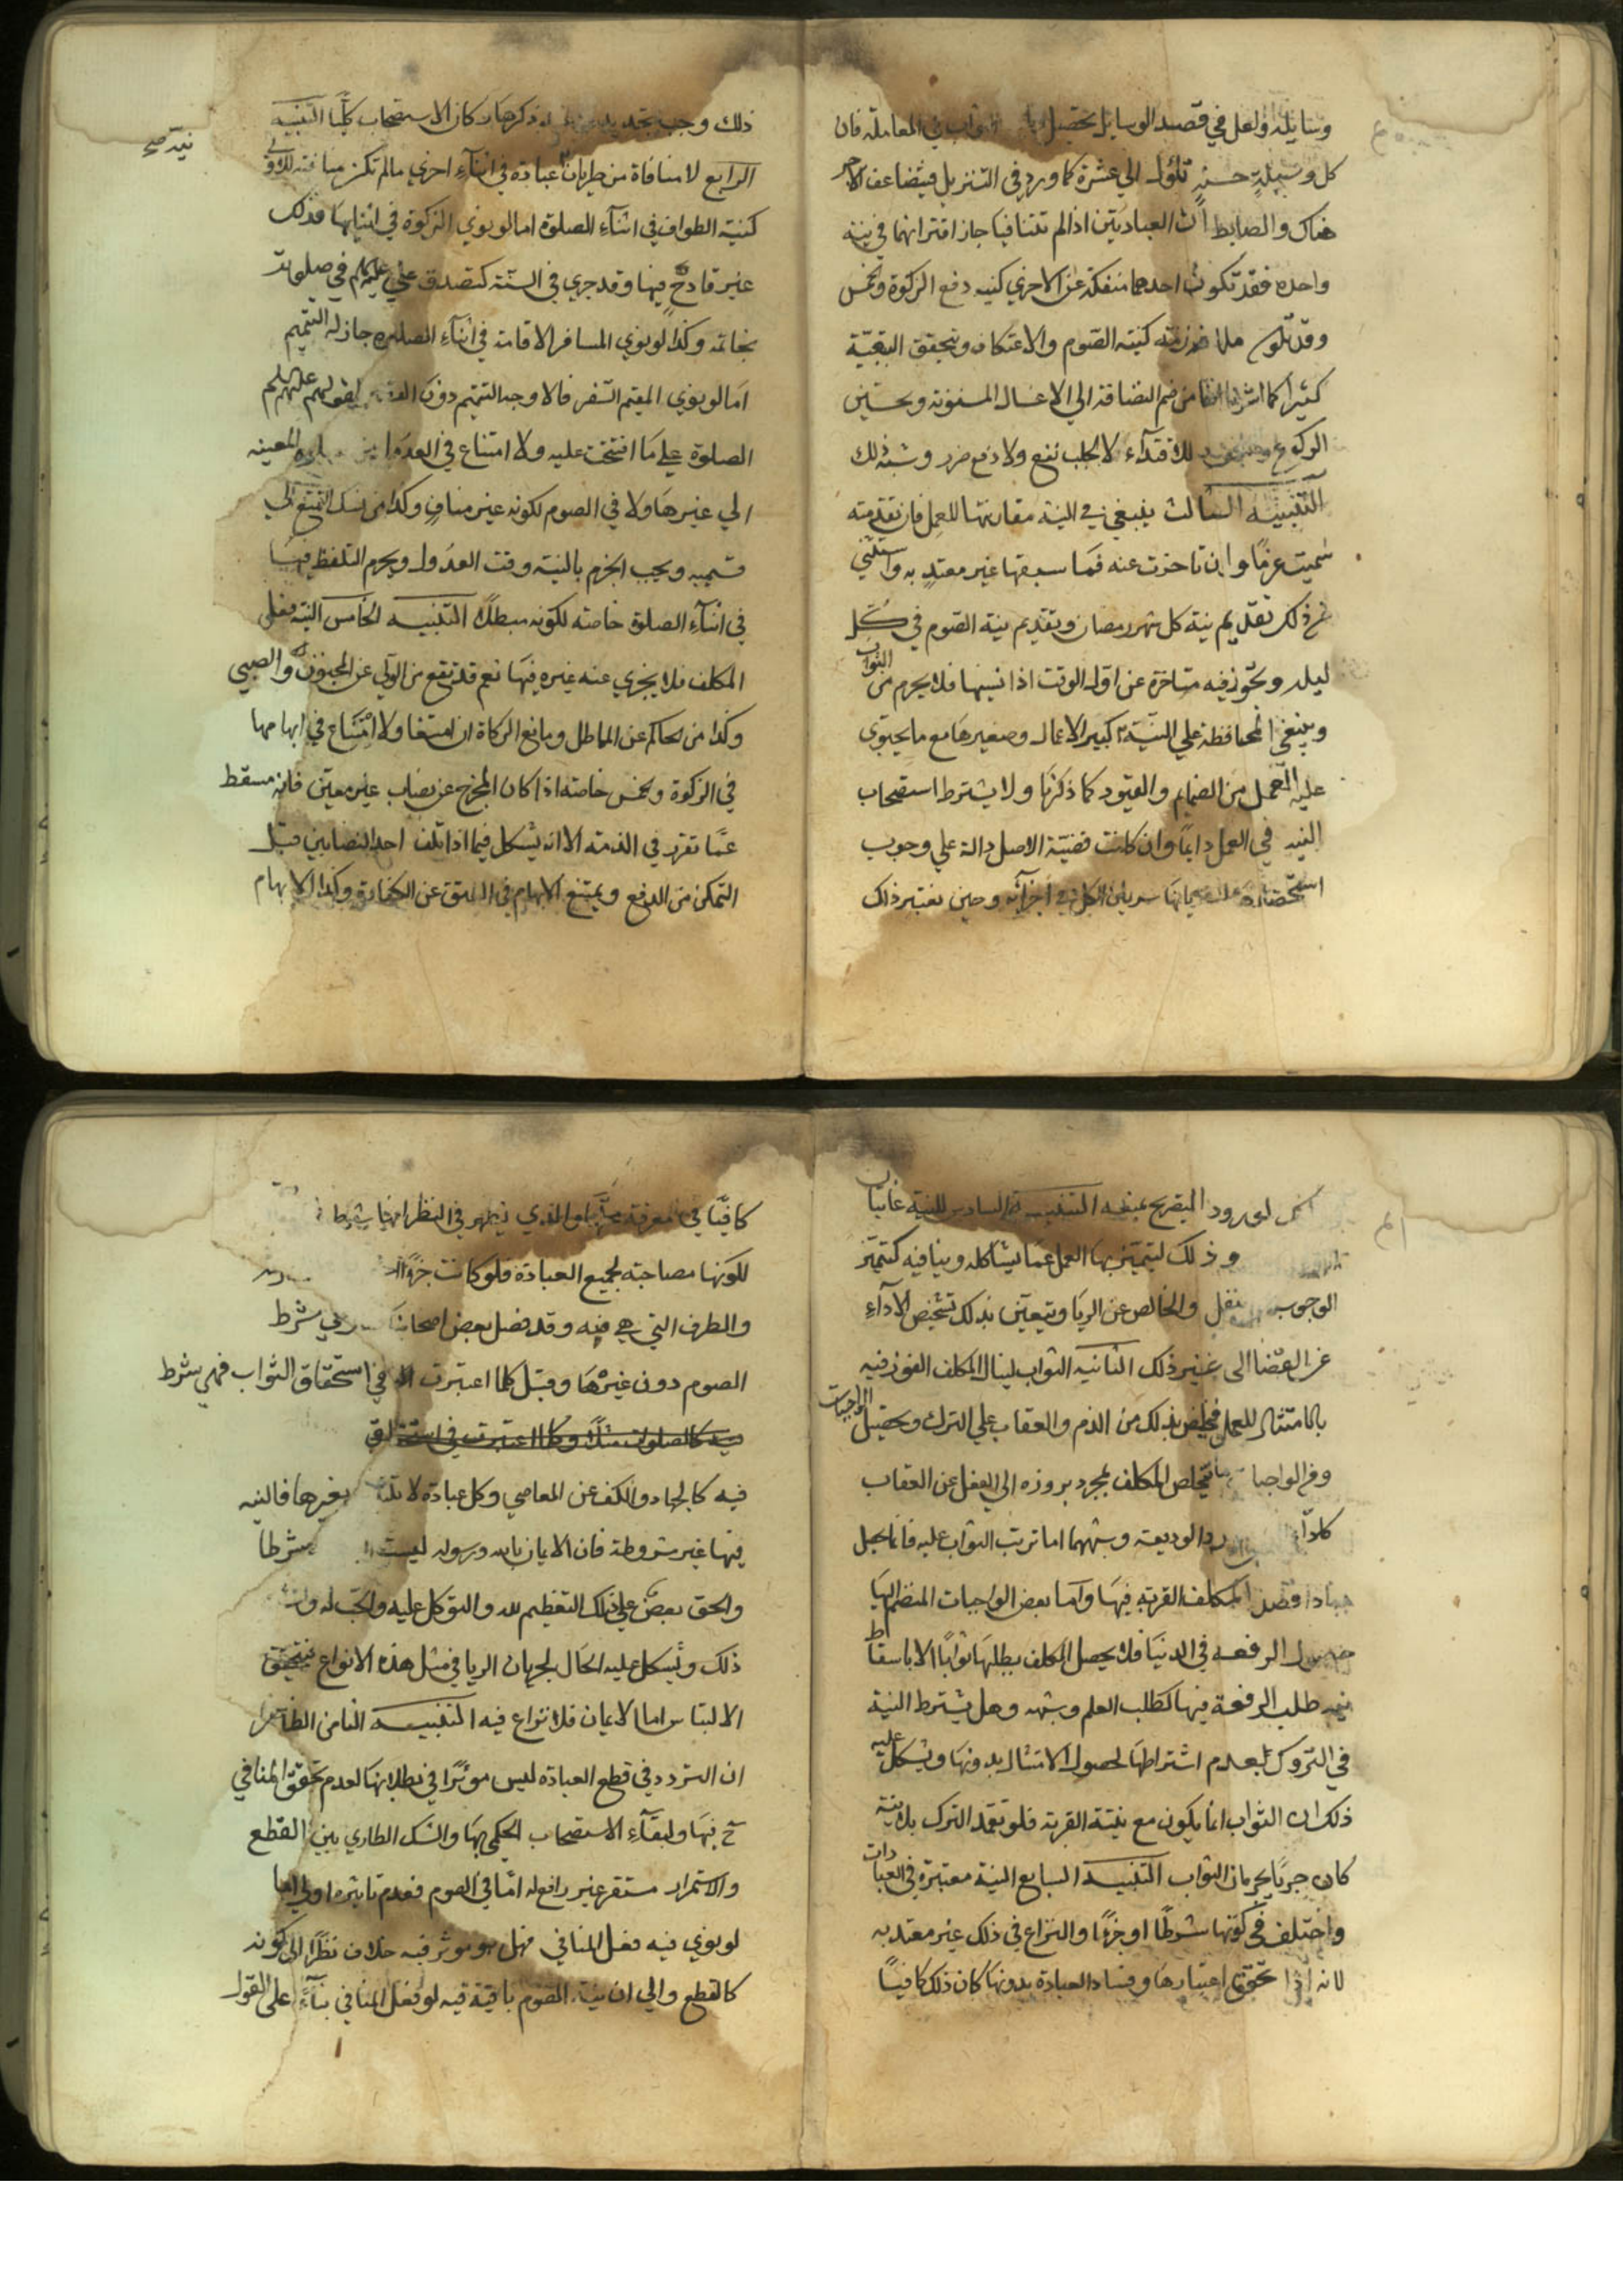 وسايله ولعل في قصد الوسايل تحصيل الثواب في المعاملة فان
كل وسيلة حسنة تؤل الي عشرة كما ورد في التنزيل فيتضاعف الاجر
هناك والضابط ان العبادتين اذا لم تتنافيا جاز اقترانهما في نية
واحدة فقد تكون احدهما منفكة عن الاخري كنية دفع الزكوة والخمس
وقد تكون ملازمة كنية الصوم والاعتكاف وتحقق التبعية
كثيرا كما اشرنا انفا من ضم النضافة الي الاغسال المسنونة وتحسين
الركوع للاقتداء لا لجلب نفع ولا دفع ضرر وشبه ذلك
التنبيه الثالث ينبغي في النية مقارنتها للعمل فان تقدمته
سميت عزما وان تاخرت عنه فما سبقها غير معتد به واستثني
من ذلك تقديم نية كل شهر رمضان وتقديم نية الصوم في كل
ليلة وتجوز فيه متاخرة عن اول الوقت اذا نسيها فلا يحرم من الثواب
وينبغي المحافظة علي النية كبير الاعمال وصغيرها مع ما يحتوي
عليه العمل من الضمايم والقيود كما ذكرنا ولا يشترط استصحاب
النية في العمل دايما وان كانت قضية الاصل دالة علي وجوب
سريان الكل في اجزائه وحين نعتبر ذلك
ذلك وجب تجديد ذكرها كان الاستصحاب كليا التنبيه
الرابع لا منافاة من طريان نية عبادة في اثناء اخري مالم تكن منافية للاولي
كنية الطواف في اثناء الصلوة اما لو نوي الزكوة في اثنايها فذلك
غير قادح فيها وقد جري في السنة كتصدق علي عليه السلم في صلوته
بخاتمه وكذا لو نوي المسافر الاقامة في اثناء الصلوة جاز له التتميم
اما لو نوي المقيم السفر فالاوجه التتميم دون القصر لقولهم عليهم السلم
الصلوة علي ما افتتحت عليه ولا امتناع في العدول من المعينه
الي غيرها ولا في الصوم لكونه غير مناف وكذا من نسك التمتع الي
قسميه ويجب الجزم بالنية وقت العدول ويحرم التلفظ فيها
في اثناء الصلوة خاصة لكونه مبطلا التنبيه الخامس النية فعل
المكلف فلا يجزي عنه غيره فيها نعم قد تقع من الولي عن المجنون والصبي
وكذا من الحاكم عن الماطل ومانع الزكاة ان امتنعا ولا امتناع في ابهامها
في الزكوة والخمس خاصة اذا كان المخرج عن نصاب غير معين فانه مسقط
عما تقرر في الذمة الا انه يشكل فيما اذا تلف احد النصابين قبل
التمكن من الدفع ويمتنع الابهام في العتق عن الكفارة وكذا الابهام
نية صح
لورود التصريح بمنعه التنبيه السادس للنية غايتان
وذلك لتميز بها العمل عما يشاكله وينافيه كتميز
الوجوب النفل والخالص عن الريا ويتعين بذلك تشخيص الاداء
عن القضا الي غير ذلك الثانيه الثواب لينال المكلف الفوز فيه
بالامتثال للعمل فيخلص بذلك من الذم والعقاب علي الترك وتحصيل الواجبات
ومن الواجبا ما يتخلص المكلف بمجرد بروزه الي الفعل عن العقاب
كاداء رد الوديعة وشبههما اما ترتب الثواب عليه فانما يحصل
اذا قصد المكلف القربة فيها واما بعض الواجبات المنضم اليها
حصول الرفعه في الدنيا فلا يحصل المكلف بطلبها ثوابا الا باسقاط
نية طلب الرفعة فيها كطلب العلم وشبهه وهل يشترط النية
في التروك قيل بعدم اشتراطها لحصول الامتثال بدونها ويشكل عليه
ذلك ان الثواب انما يكون مع نية القربة فلو تعمد الترك بلا نية
كان حريا بحرمان الثواب التنبيه السابع النية معتبرة في العبادات
واختلف في كونها شرطا او جزءا والنزاع في ذلك غير معتد به
لانه اذا تحقق اعتبارها وفساد العبادة بدونها كان ذلك كافيا
كافيا في معرفة محلها والذي يظهر في النظر انها شرط
لكونها مصاحبة لجميع العبادة فلو كانت جزءا
والطرف التي هي فيه وقد فصل بعض اصحابنا شرط
الصوم دون غيرها وقيل كلما اعتبرت في استحقاق الثواب فهي شرط
فيه كالجهاد والكف عن المعاصي وكل عبادة لا بغيرها فالنية
فيها غير مشروطة فان الايمان بالله ورسوله ليست شرطا
والحق بعض علي ذلك التعظيم لله والتوكل عليه والحب له
ذلك ويشكل عليه الحال لجريان الريا في مثل هذه الانواع فيتحقق
الالتباس اما الايمان فلا نزاع فيه التنبيه الثامن الظاهر
ان التردد في قطع العبادة ليس موثرا في بطلانها لعدم تحقق المنافي
ح فيها ولبقاء الاستصحاب الحكمي بها والشك الطاري بين القطع
والاستمرار مستقر غير رافع له اما في الصوم فعدم تاثيره اولي اما
لو نوي فيه فعل المنافي فهل هو موثر فيه خلاف نظرا الي كونه
كالقطع والي ان نية الصوم باقية فيه لو فعل المنافي بناء علي القول